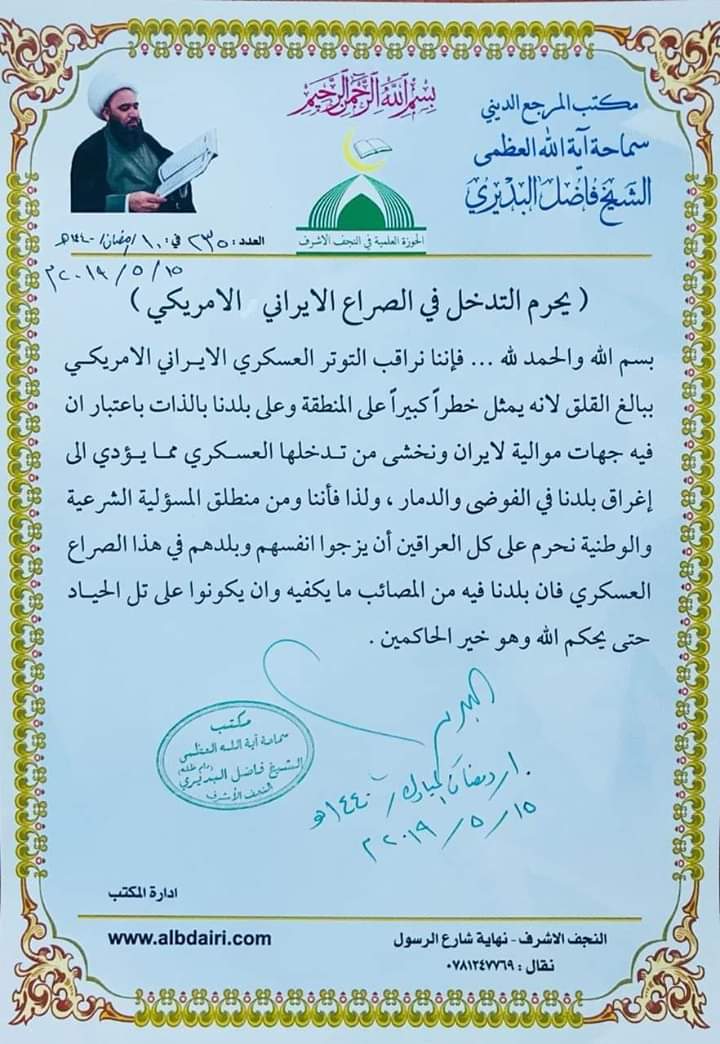 بسم الله الرحمن الرحيم
مكتب المرجع الديني
سماحة آية الله العظمى
الشيخ فاضل البديري
الحوزة العلمية في النجف الاشرف
العدد : ٢٣٥ في : ١٠ / رمضان / ١٤٤٠هـ
٢٠١٩/٥/١٥ م
( يحرم التدخل في الصراع الايراني الامريكي )
بسم الله والحمد لله ... فإننا نراقب التوتر العسكري الايراني الامريكي
ببالغ القلق لانه يمثل خطراً كبيراً على المنطقة وعلى بلدنا بالذات باعتبار ان
فيه جهات موالية لايران ونخشى من تدخلها العسكري مما يؤدي الى
إغراق بلدنا في الفوضى والدمار ، ولذا فأننا ومن منطلق المسؤلية الشرعية
والوطنية نحرم على كل العراقين أن يزجوا انفسهم وبلدهم في هذا الصراع
العسكري فان بلدنا فيه من المصائب ما يكفيه وان يكونوا على تل الحياد
حتى يحكم الله وهو خير الحاكمين .
البديري
١٠ رمضان المبارك / ١٤٤٠هـ
٢٠١٩/٥/١٥ م
مكتب
سماحة آية الله العظمى
الشيخ فاضل البديري (دام ظله)
النجف الأشرف
ادارة المكتب
النجف الاشرف - نهاية شارع الرسول
نقال : ٠٧٨١٢٤٧٧٦٩
www.albdairi.com